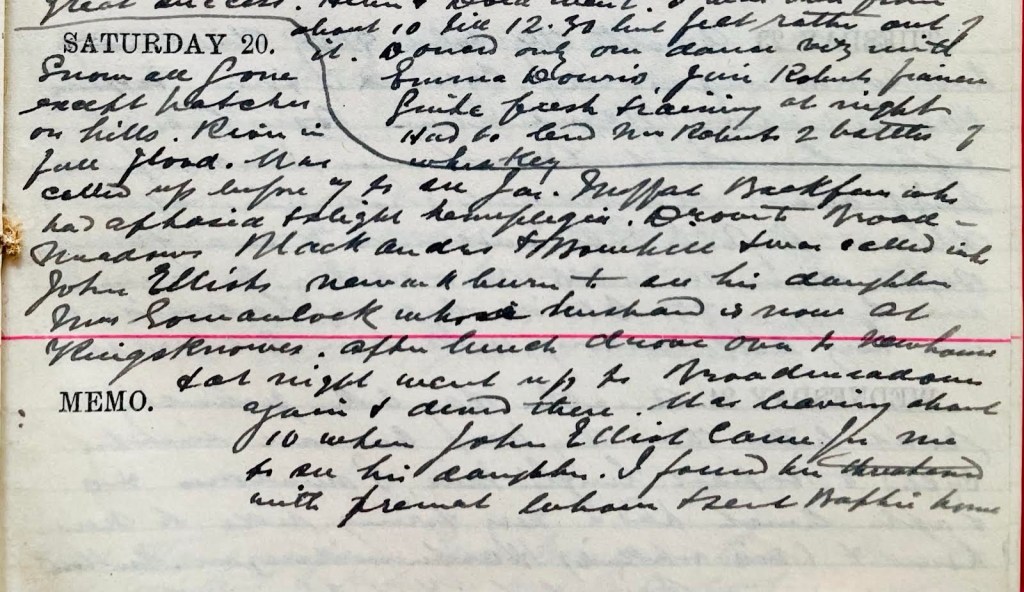 great success.
about 10 till 12.30 but felt rather out of
it. Danced only one dance viz with
Emma Jim Roberts fiancee
Quite fresh training at night
Had to lend Mrs Roberts 2 bottles of
whiskey
SATURDAY 20.
Snow all gone
except patches
on hills. River in
full flood. Was
called up before 7 to see Jas. Moffat who
had aphasia & slight hemiplegia. Drove to Broad-
meadows Black Andro & & was called into
John Elliots Newark burn to see his daughter
Mrs whose husband is now at
Kingsknowes. After lunch drove over to Newhouse
& at night went up to Broadmeadows
MEMO.
again & dined there. Was leaving about
10 when John Elliot came for me
to see his daughter. I found her threatened
with premat labour & sent home